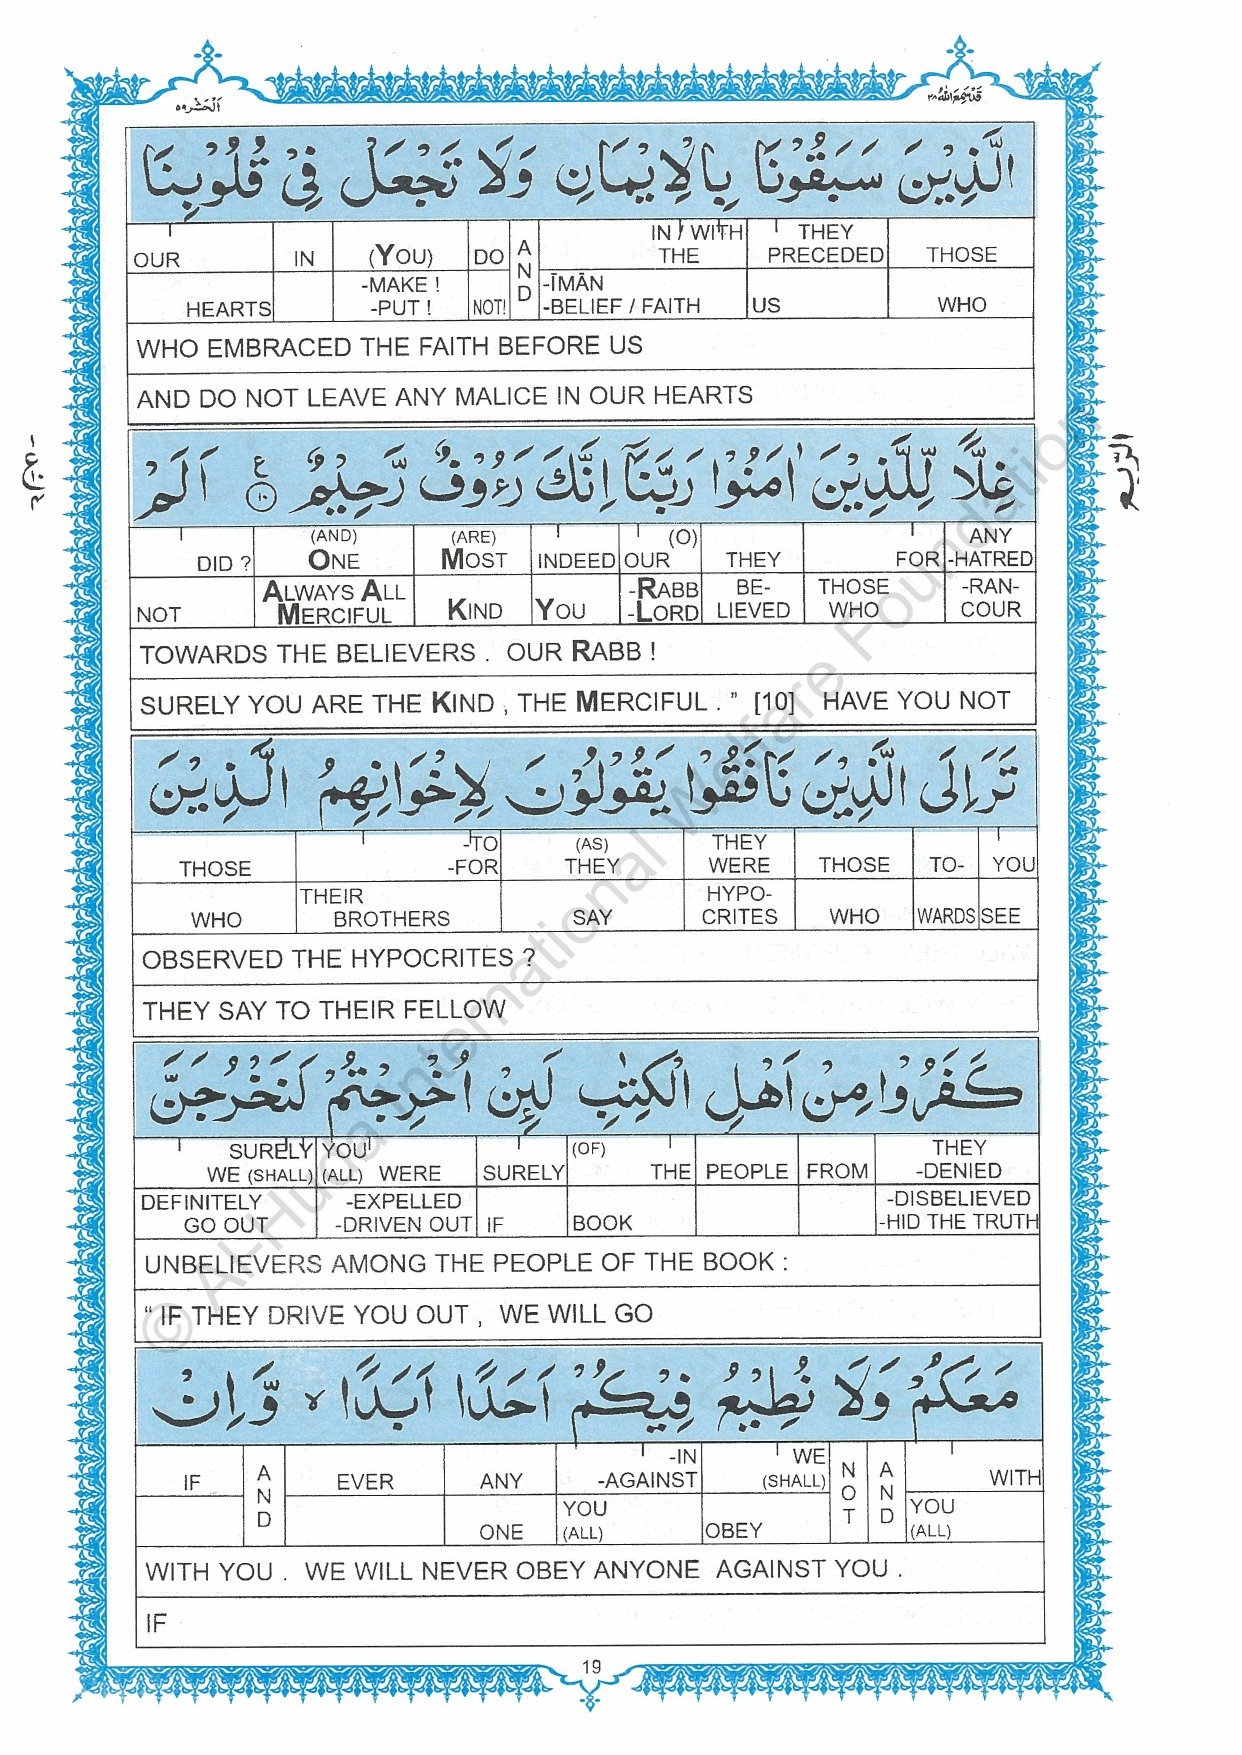 اَلْحَشْر ٥٩ قَدْ سَمِعَ اللّٰهُ ٢٨
الَّذِيْنَ سَبَقُوْنَا بِالْاِيْمَانِ وَلَا تَجْعَلْ فِيْ قُلُوْبِنَا
OUR IN (YOU) DO AND IN / WITH THE THEY PRECEDED THOSE
HEARTS -MAKE ! -PUT ! NOT! -ĪMĀN -BELIEF / FAITH US WHO
WHO EMBRACED THE FAITH BEFORE US
AND DO NOT LEAVE ANY MALICE IN OUR HEARTS
غِلًّا لِّلَّذِيْنَ اٰمَنُوْا رَبَّنَآ اِنَّكَ رَءُوْفٌ رَّحِيْمٌ ع ١٠ اَلَمْ
DID ? (AND) ONE (ARE) MOST INDEED (O) OUR THEY FOR ANY -HATRED
NOT ALWAYS ALL MERCIFUL KIND YOU -RABB -LORD BE- LIEVED THOSE WHO -RAN- COUR
TOWARDS THE BELIEVERS . OUR RABB !
SURELY YOU ARE THE KIND , THE MERCIFUL . ” [10] HAVE YOU NOT
تَرَ اِلَى الَّذِيْنَ نَافَقُوْا يَقُوْلُوْنَ لِاِخْوَانِهِمُ الَّذِيْنَ
THOSE -TO -FOR (AS) THEY THEY WERE THOSE TO- YOU
WHO THEIR BROTHERS SAY HYPO- CRITES WHO WARDS SEE
OBSERVED THE HYPOCRITES ?
THEY SAY TO THEIR FELLOW
كَفَرُوْا مِنْ اَهْلِ الْكِتٰبِ لَئِنْ اُخْرِجْتُمْ لَنَخْرُجَنَّ
SURELY WE (SHALL) YOU (ALL) WERE SURELY (OF) THE PEOPLE FROM THEY -DENIED
DEFINITELY GO OUT -EXPELLED -DRIVEN OUT IF BOOK -DISBELIEVED -HID THE TRUTH
UNBELIEVERS AMONG THE PEOPLE OF THE BOOK :
“ IF THEY DRIVE YOU OUT , WE WILL GO
مَعَكُمْ وَلَا نُطِيْعُ فِيْكُمْ اَحَدًا اَبَدًا ۙ وَّاِنْ
IF AND EVER ANY -IN -AGAINST WE (SHALL) NOT AND WITH
ONE YOU (ALL) OBEY YOU (ALL)
WITH YOU . WE WILL NEVER OBEY ANYONE AGAINST YOU .
IF
19
الرّبع
© Al-Huda International Welfare Foundation